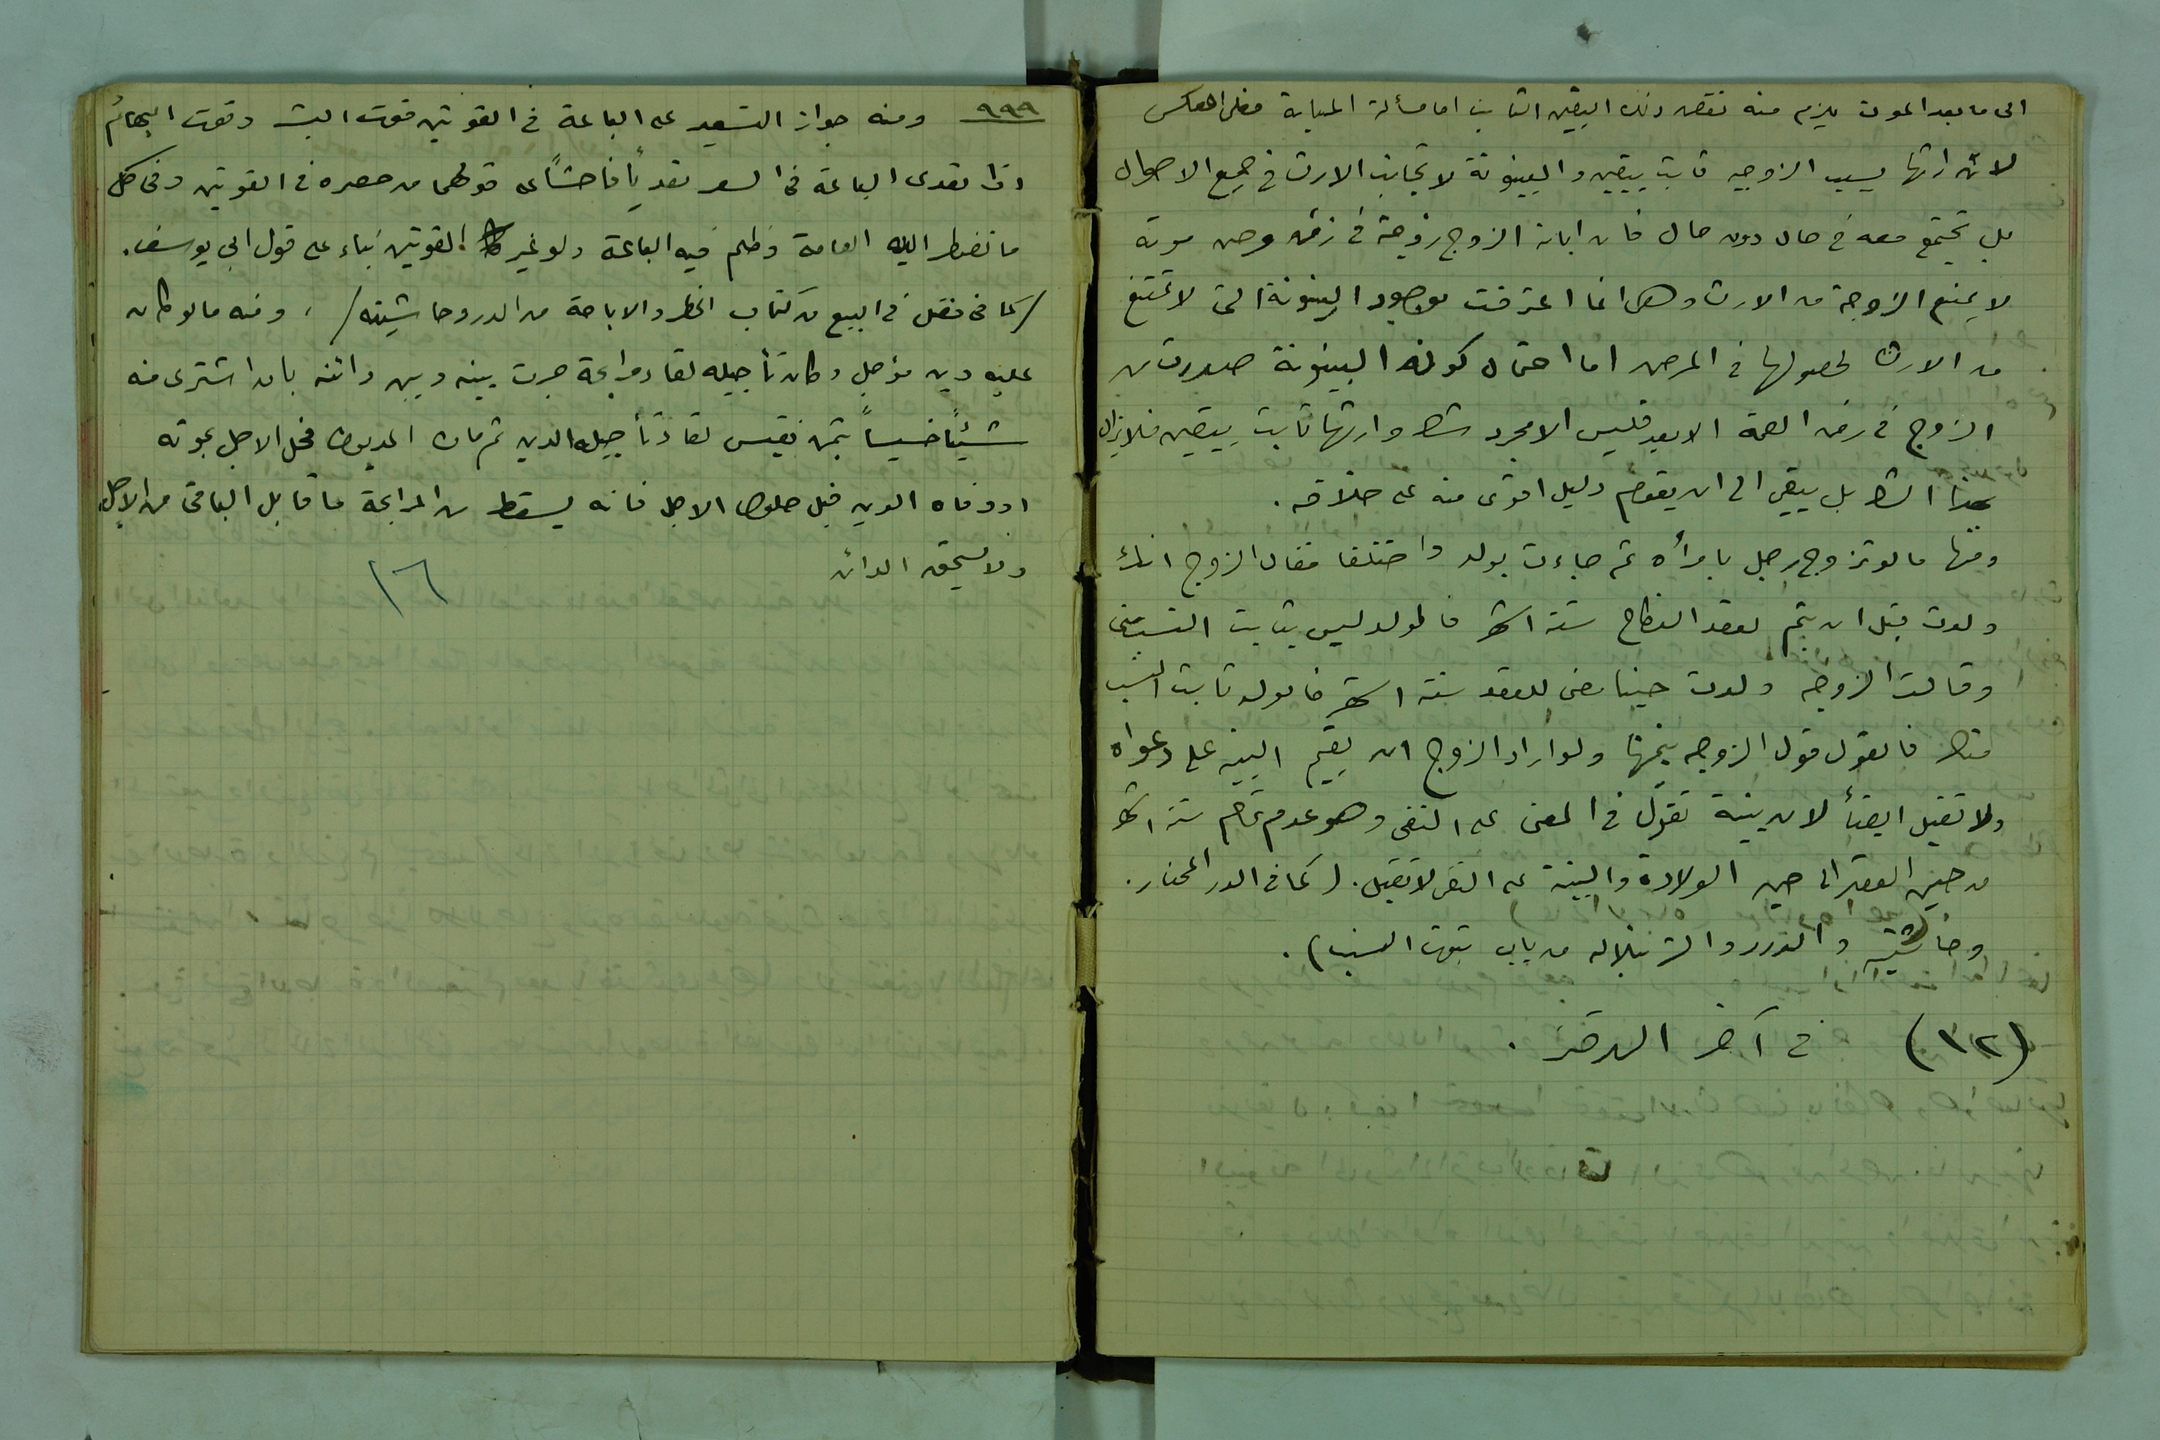 الى ما بعد الموت يلزم منه نقض ذلك اليقين الثابت اما مسألة المبانة فعلى العكس
لان ارثها بسبب الزوجية ثابت بيقين والبينونة لا تجانب الارث في جميع الاحوال
بل تجتمع معه في حال دون حال فان ابانة الزوج زوجته في زمن مرض موته
لا يمنع الزوجة من الارث وهي انما اعترفت بوجود البينونة التي لا تمتنع
من الارث لحصولها في المرض اما احتمال كون البينونة صدرت من
الزوج في زمن الصحة الابعد فليس الا مجرد شك وارثها ثابت بيقين فلا يزال
بهذا الشك بل يبقى الى ان يقوم دليل اقوى منه على خلافه .
ومنها ما لو تزوج رجل بامرأة ثم جاءت بولد واختلفا فقال الزوج انك
ولدت قبل ان يتم لعقد النكاح ستة اشهر فالولد ليس بثابت النسب مني
وقالت الزوجة ولدت حينما مضى للعقد ستة اشهر فالولد ثابت النسب
منك فالقول قول الزوجة بيمينها ولو اراد الزوج ان يقيم البينة على دعواه
ولا تقبل ايضاً لان بينة تقول في المعنى على النفي وهو عدم تمام ستة اشهر
من حين العقد الى حين الولادة والبينة على النفي لا تقبل . (كما في الدر المختار .
وحاشيته والدرر والشرنبلالية من باب ثبوت النسب) .
(٣٢) في آخر الدفتر .
٩٩٩ ومنه جواز التسعير على الباعة في القوتين قوت البشر وقوت البهائم
اذا تعدى الباعة في السعر تعدياً فاحشاً على قولهما من حصره في القوتين وفي كل
ما تضطر اليه العامة وظلم فيه الباعة ولو غير القوتين بناء على قول ابي يوسف .
/كما في فصل في البيع من كتاب الحظر والاباحة من الدر وحاشيته/ ، ومنه ما لو كان
عليه دين مؤجل وكان تأجيله لقاء مرابحة جرت بينه وبين دائنه بان اشترى منه
شيئاً خسيساً بثمن نفيس لقاء تأجيله الدين ثم مات المديون فحل الاجل بموته
او وفاه الدين قبل حلول الاجل فانه يسقط من المرابحة ما قابل الباقي من الاجل
ولا يستحقه الدائن
١٦